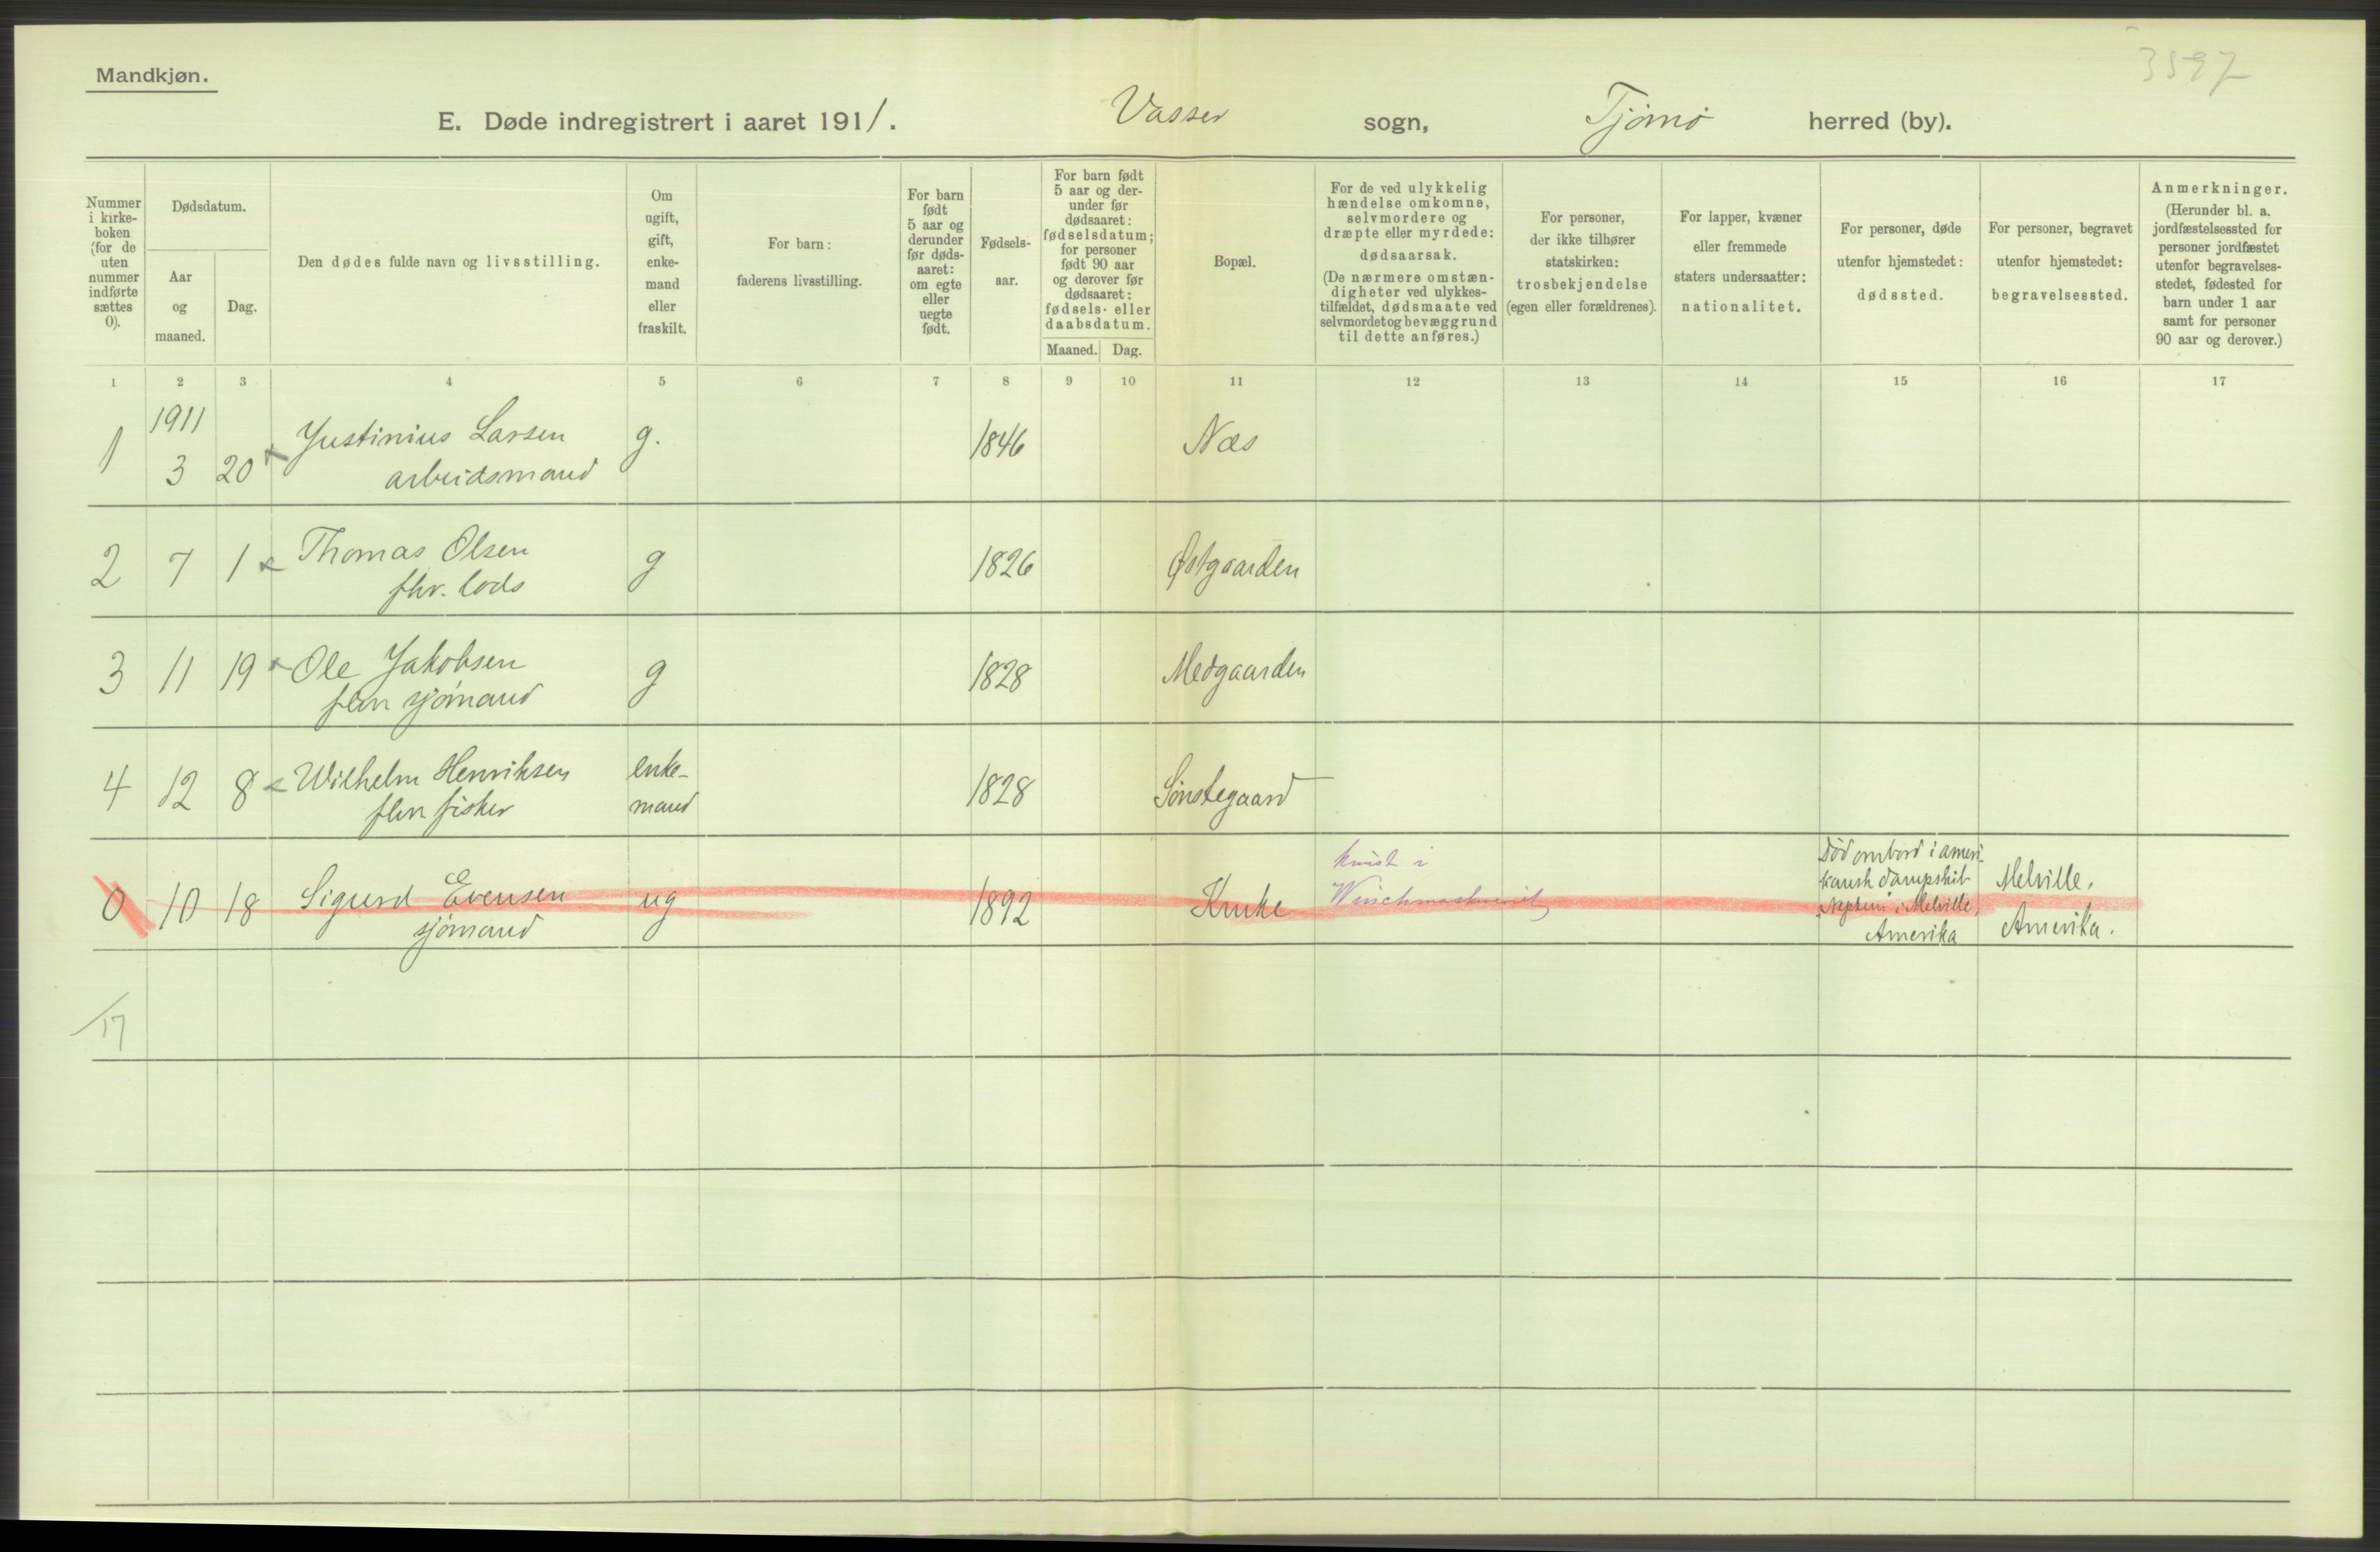 Mandkjøn.
3597
E. Døde indregistrert i aaret 1911. Vasser sogn, Tjømø herred (by).
Nummer i kirke- boken (for de uten nummer indførte sættes 0).
Dødsdatum.
Aar og maaned.
Dag.
Den dødes fulde navn og livsstilling.
Om ugift, gift, enke- mand eller fraskilt.
For barn: faderens livsstilling.
For barn født 5 aar og derunder før døds- aaret: om egte eller uegte født.
Fødsels- aar.
For barn født 5 aar og der- under før dødsaaret: fødselsdatum; for personer født 90 aar og derover før dødsaaret: fødsels- eller daabsdatum.
Maaned. Dag.
Bopæl.
For de ved ulykkelig hændelse omkomne, selvmordere og dræpte eller myrdede: dødsaarsak.
(De nærmere omstæn- digheter ved ulykkes- tilfældet, dødsmaate ved selvmord et og bevæggrund til dette anføres.)
For personer, der ikke tilhører statskirken: trosbekjendelse (egen eller forældrenes).
For lapper, kvæner eller fremmede staters undersaatter: nationalitet.
For personer, døde utenfor hjemstedet: dødssted.
For personer, begravet utenfor hjemstedet: begravelsessted.
Anmerkninger.
(Herunder bl. a. jordfæstelsessted for personer jordfæstet utenfor begravelses- stedet, fødested for barn under 1 aar samt for personer 90 aar og derover.)
1 2 3 4 5 6 7 8 9 10 11 12 13 14 15 16 17
1911
1 3 20 Justinius Larsen g. 1846 Næs
arbeidsmand
2 7 1 Thomas Olsen g 1826 Østgaarden
fhv. lods
3 11 19 Ole Jakobsen g 1828 Medgaarden
fhv sjømand
4 12 8 Wilhelm Henriksen enke- 1828 Sønstegaard
fhv fisker mand
0 10 18 Sigurd Evensen ug 1892 Kruke
sjømand
knist i
Winchmaskineriet
Død ombord i ameri-
kansk dampskib
"Neptun" i Melville,
Amerika
Melville,
Amerika.
17